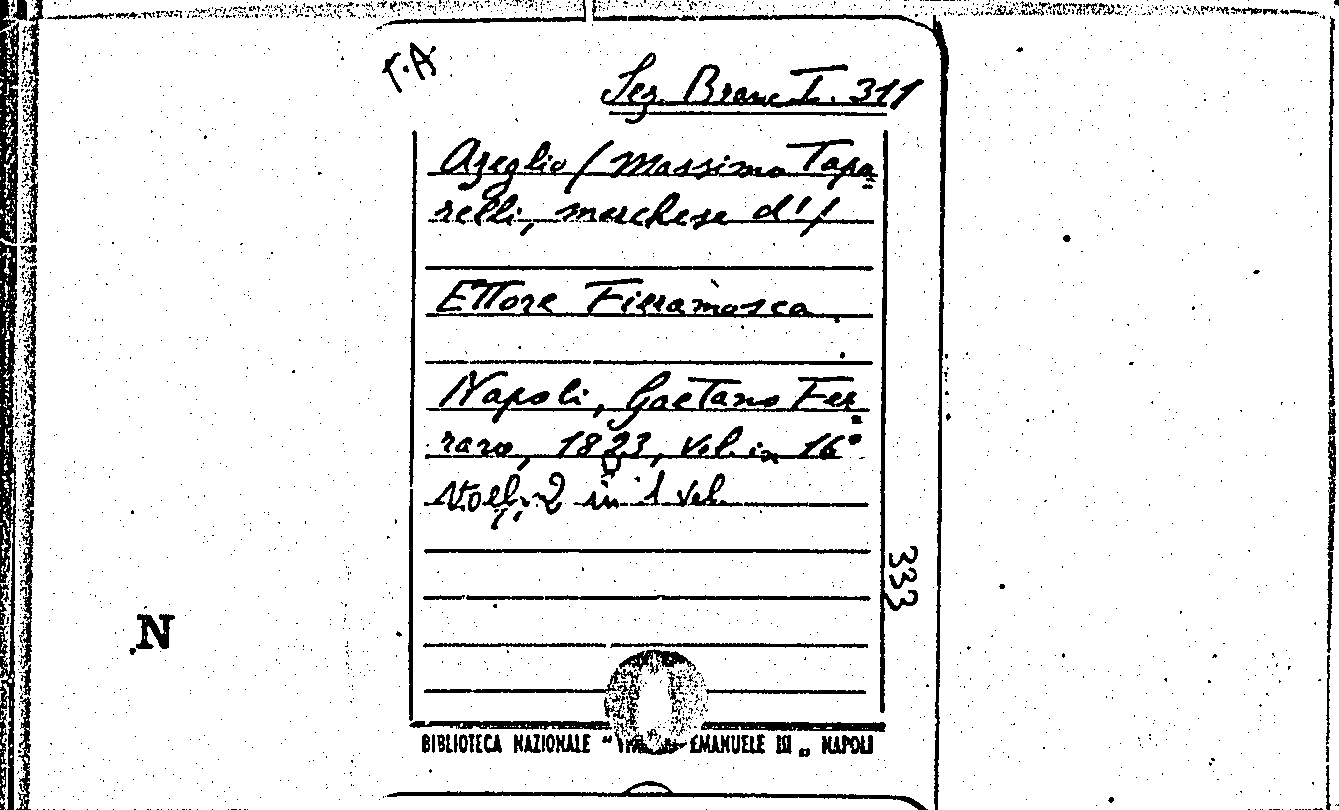 T.A
Sez. Branc I. 311
Azeglio / Massimo Tapa=
relli, marchese d'/
Ettore Fieramosca
Napoli, Gaetano Fer=
raro, 1823, vol. in 16°
Voll. 2 in 1 vol.
333
N
BIBLIOTECA NAZIONALE " EMANUELE III „ NAPOLI